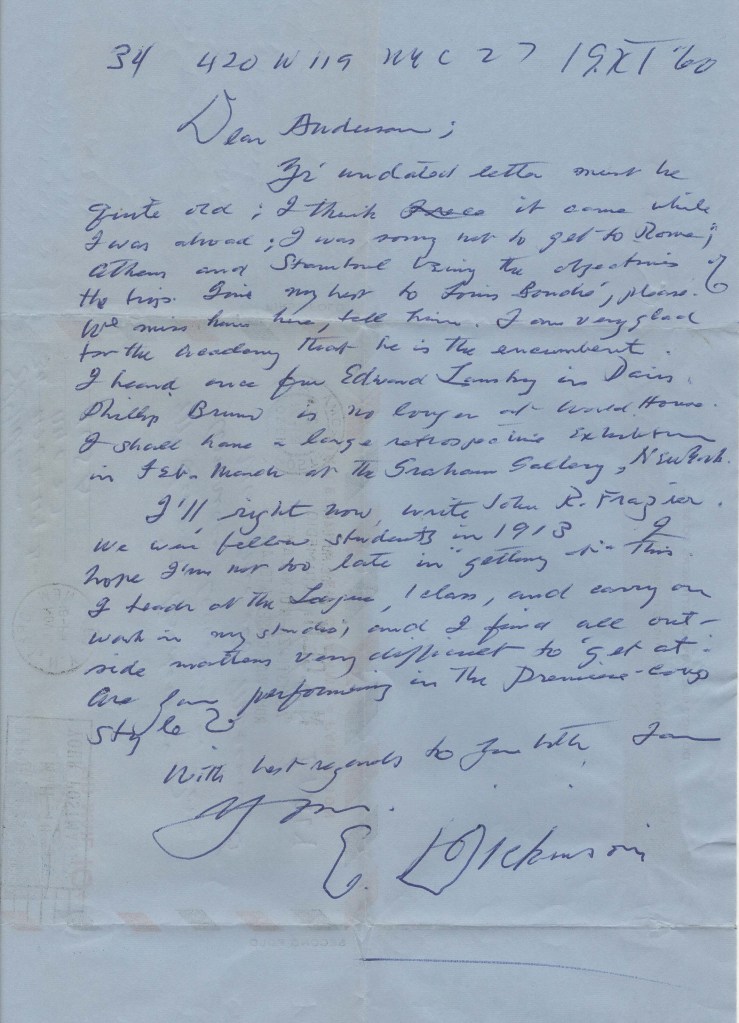 34 420 W 119 NYC 27 19.XI '60
Dear Anderson;
Yr undated letter must be
quite old; I think it came while
I was abroad; I was sorry not to get to Rome;
Athens and Stambul being the objectives of
the trip. Give my best to Louis Bouché, please.
We miss him here, tell him. I am very glad
for the Academy that he is the encumbent.
I heard once fm Edward Lansky in Paris.
Phillip Bruno is no longer at World House.
I shall have a large retrospective Exhibition
in Feb. March at the Graham Gallery, New York.
I'll, right now, write John R. Frazier.
We were fellow students in 1913 I
hope I'm not too late in "getting to" this.
I teach at the League, 1 class, and carry on
work in my studio; and I find all out-
side matters very difficult to "get at".
Are you performing in the Premiere-coup
style?
With best regards to you both, I am
Yrs.
E. Dickinson
SECOND FOLD